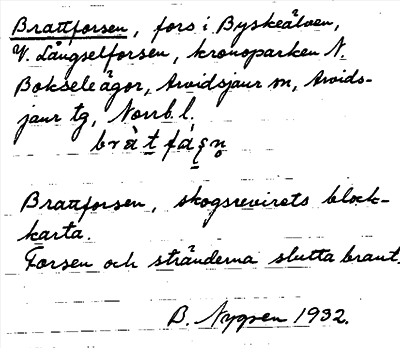 Brattforsen, fors i Byskeälven,
V. Långselforsen, kronoparken N.
Bokseleägor, Arvidsjaur sn, Arvids-
jaur tg, Norrb. l.
Brattforsen, skogsrevirets block-
karta.
Forsen och stränderna slutta brant.
B. Nygren 1932.